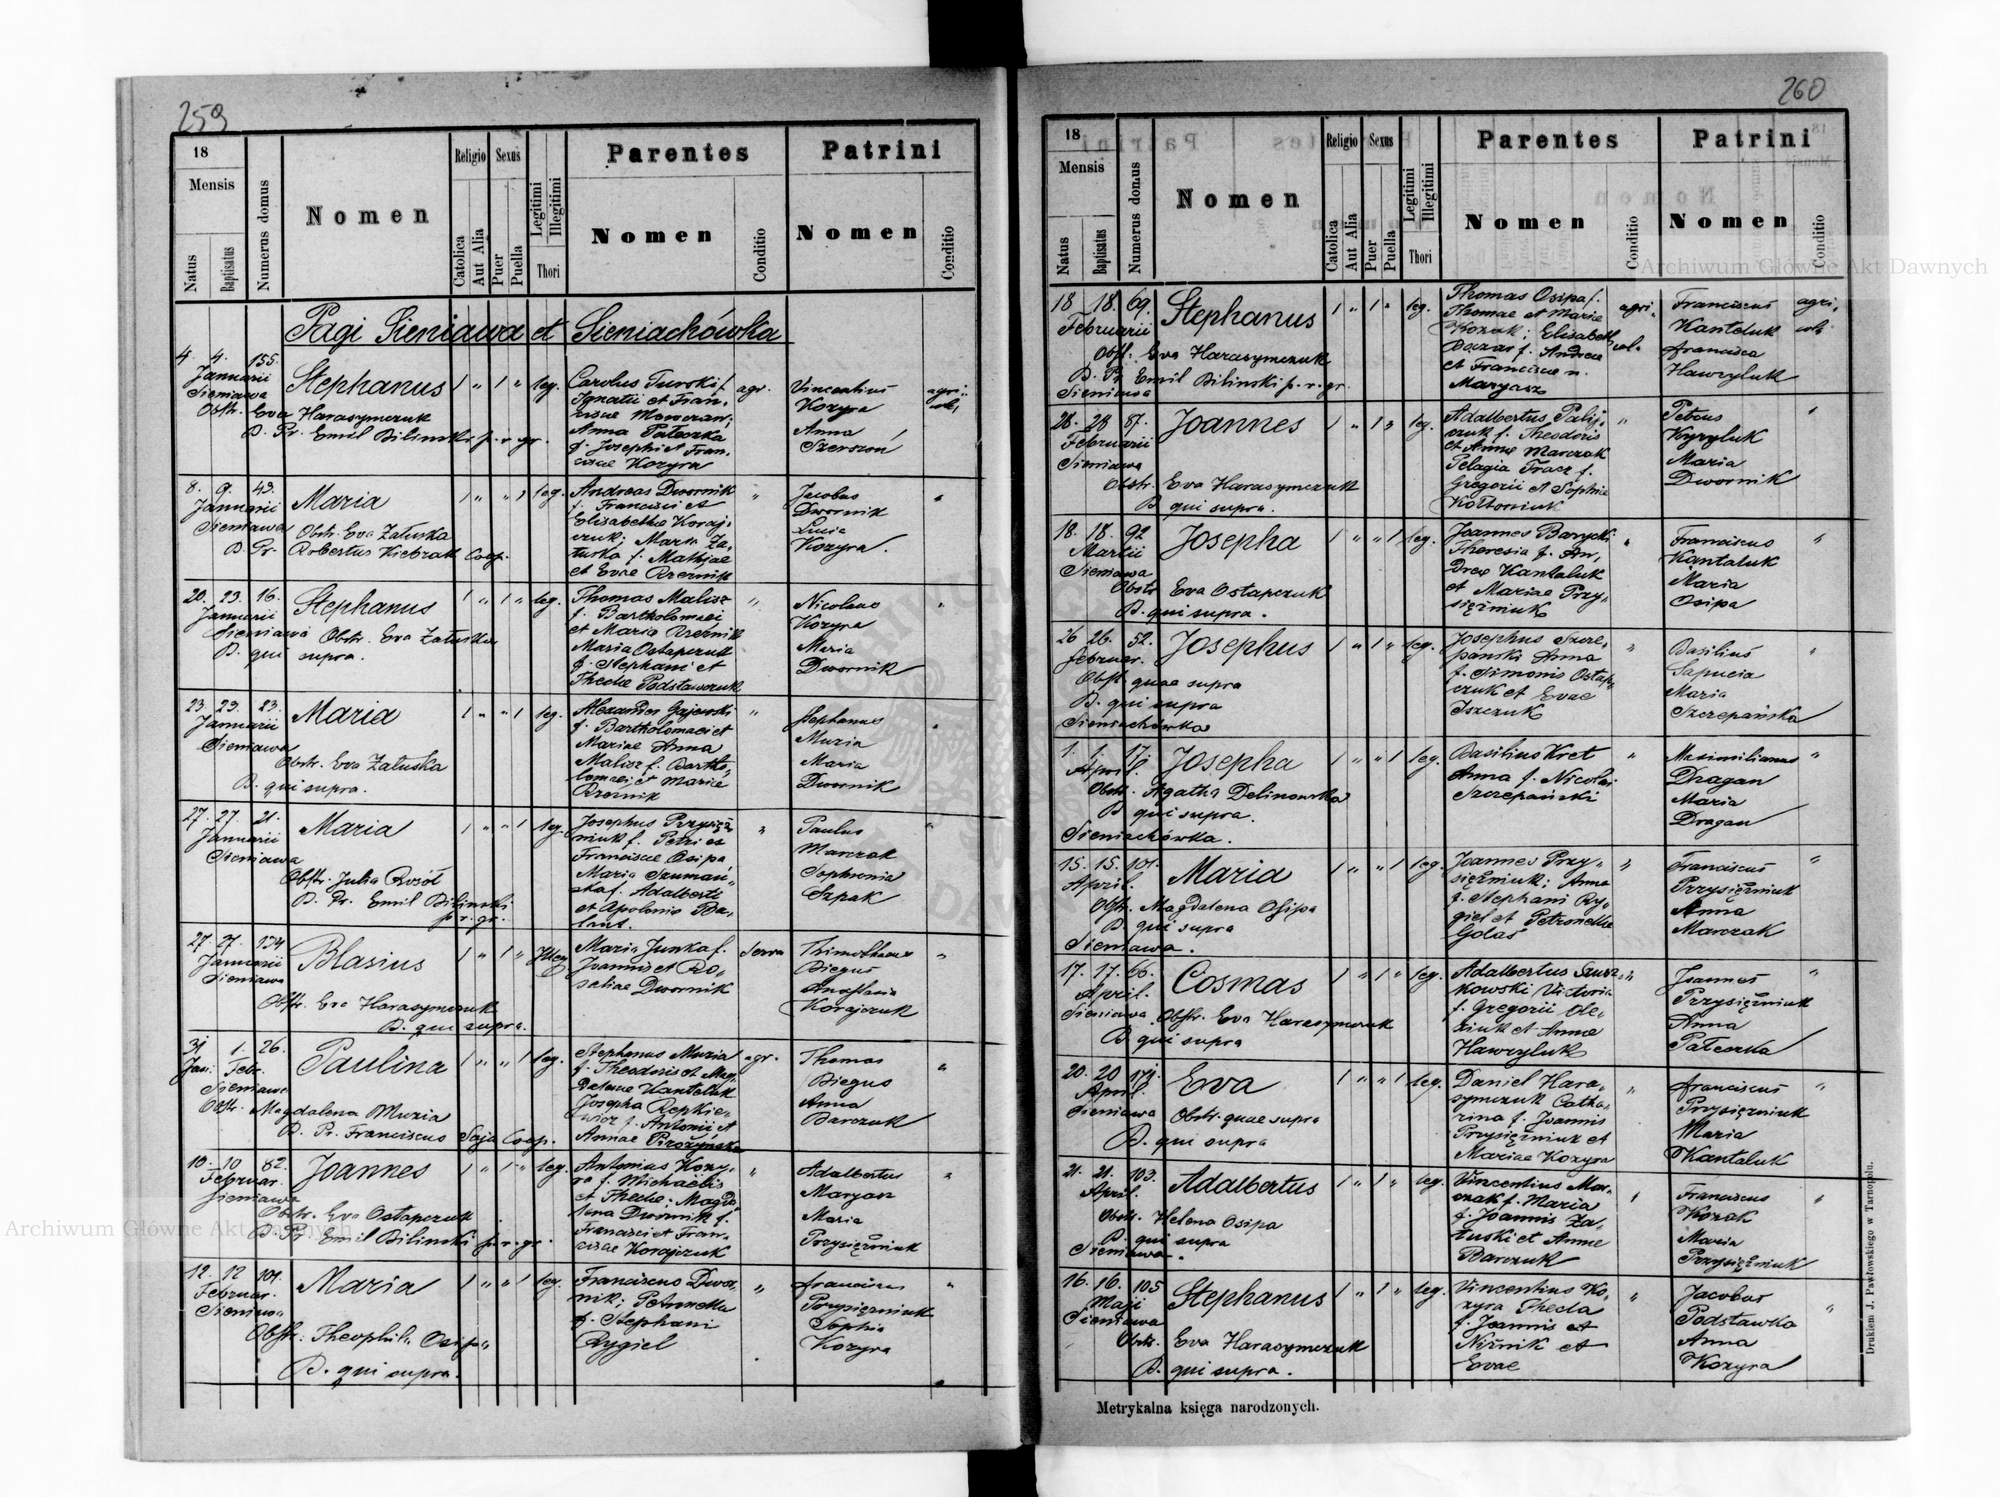 259
18
Mensis
Natus
Baptisatus
Numerus domus
Nomen
Religio
Catolica
Aut Alia
Sexus
Puer
Puella
Legitimi
Illegitimi
Thori
Parentes
Nomen
Conditio
Patrini
Nomen
Conditio
Pagi Sieniawa et Sieniachówka
4. 4. 155.
Januarii
Sieniawa
Stephanus 1 „ 1 „ leg.
Obstr. Eva Harasymczuk
B. Pr. Emil Bilinski p. r. gr.
Carolus Turski f.
Ignatii et Fran-
Anna Pałeczka
f. Josephi et Fran-
ciscae Kozyra
agr.
Vincentius
Kozyra
Anna
agri-
8. 9. 43.
Januarii
Sieniawa
Maria 1 „ „ 1 leg.
Obstr. Eva Załuska
B. Pr. Robertus Coop.
Andreas Dwornik
f. Francisci et
Elisabethae Koraj-
czuk; Maria Za-
łuska f. Mathiae
et Evae Rzeznik
„
Jacobus
Dwornik
Lucia
Kozyra.
„
20. 23. 16.
Januarii
Sieniawa
Stephanus 1 „ 1 „ leg.
Obstr. Eva Załuska
B. qui supra.
Thomas Malisz
f. Bartholomaei
et Maria Rzeznik
Maria Ostapczuk
f. Stephani et
Theclae Podstawczuk
„
Nicolaus
Kozyra
Maria
Dwornik
„
23. 23. 23.
Januarii
Sieniawa
Maria 1 „ „ 1 leg.
Obstr. Eva Załuska
B. qui supra.
Alexander Gajewski
f. Bartholomaei et
Mariae Anna
Malisz f. Bartho-
lomaei et Mariae
Rzeznik
„
Stephanus
Muzia
Maria
Dwornik
„
27. 27. 21.
Januarii
Sieniawa
Maria 1 „ „ 1 leg.
Obstr. Julia
B. Pr. Emil Bilinski
p. r. gr.
Josephus Przysięż-
niuk f. Petri et
Franciscae Osipa
Maria Szumań-
ska f. Adalberti
et Apolonia Ba-
„
Paulus
Marczak
Sophronia
Szpak
„
27. 27. 134
Januarii
Sieniawa
Blasius 1 „ 1 „ Illeg.
Obstr. Eva Harasymczuk
B. qui supra.
Maria Junka f.
Joannis et Ro-
saliae Dwornik
Serva
Thimotheus
Biegus
Anastasia
Korajczuk
„
31 1. 26.
Jan. Febr.
Sieniawa
Paulina 1 „ „ 1 leg.
Obstr. Magdalena Muzia
B. Pr. Franciscus Coop.
Stephanus Muzia
f. Theodoris et Mag-
dalenae Kantaluk
Josepha Repkie-
wicz f. Antonii et
Annae
agr.
Thomas
Biegus
Anna
Barczuk
„
10. 10 82.
Februar.
Sieniawa
Joannes 1 „ 1 „ leg.
Obstr. Eva Ostapczuk
B. Pr. Emil Bilinski p. r. gr.
Antonius Kozy-
ra f. Michaelis
et Theclae; Magda-
lena Dwornik f.
Francisci et Fran-
ciscae Korajczuk
„
Adalbertus
Maryasz
Maria
Przysiężniuk
„
12. 12 101.
Februar.
Sieniawa
Maria 1 „ „ 1 leg.
Obstr: Theophila Osipa
B. qui supra.
Franciscus Dwor-
nik; Petronella
f. Stephani
Rygiel
„
Franciscus
Przysiężniuk
Sophia
Kozyra
„
260
18
Mensis
Natus
Baptisatus
Numerus domus
Nomen
Religio
Catolica
Aut Alia
Sexus
Puer
Puella
Legitimi
Illegitimi
Thori
Parentes
Nomen
Conditio
Patrini
Nomen
Conditio
18 18. 69.
Februarii
Stephanus 1 „ 1 „ leg.
Obst. Eva Harasymczuk
B. Pr. Emil Bilinski p. r. gr.
Sieniawa
Thomas Osipa f.
Thomae et Mariae
Kozak; Elisabeth
f. Andreae
et Franciscae n.
Maryasz
agri-
col.
Franciscus
Kantaluk
Francisca
Hawryluk
agri-
28. 28 87.
Februarii
Sieniawa
Joannes 1 „ 1 „ leg.
Obstr. Eva Harasymczuk
B. qui supra.
Adalbertus Palij-
czuk f. Theodoris
et Annae Marczak
Pelagia Tracz f.
Gregorii et Sophiae
Kołtoniuk
„
Petrus
Kyryluk
Maria
Dwornik
18. 18. 92
Martii
Sieniawa
Josepha 1 „ „ 1 leg.
Obstr. Eva Ostapczuk
B. qui supra.
Joannes Barycki
Theresia f. An-
dreae Kantaluk
et Mariae Przy-
siężniuk
„
Franciscus
Kantaluk
Maria
Osipa
„
26 26. 52.
Februar.
Josephus 1 „ 1 „ leg.
Obst. quae supra
B. qui supra
Sieniachówka
Josephus Szcze-
pański Anna
f. Simonis Ostap-
czuk et Evae
Iszczuk
„
Basilius
Sapucia
Maria
Szczepańska
„
1. 1. 17.
April.
Josepha 1 „ „ 1 leg.
Obstr. Agatha Delinowska
B. qui supra.
Sieniachówka.
Basilius Kret
Anna f. Nicolai
Szczepański
„
Maximilianus
Dragan
Maria
Dragan
„
15. 15. 101.
April.
Maria 1 „ „ 1 leg.
Obstr. Magdalena Osipa
B. qui supra
Sieniawa.
Joannes Przy-
siężniuk; Anna
f. Stephani Ry-
giel et Petronella
Golas
„
Franciscus
Przysiężniuk
Anna
Marczak
„
17. 17. 66.
April.
Sieniawa
Cosmas 1 „ 1 „ leg.
Obstr. Eva Harasymczuk
B. qui supra
Adalbertus
kowski Victoria
f. Gregorii Ole-
et Annae
Hawryluk
„
Joannes
Przysiężniuk
Anna
Pałeczka
„
20. 20 171.
April.
Sieniawa
Eva 1 „ „ 1 leg.
Obstr. quae supra
B. qui supra
Daniel Hara-
symczuk Catha-
rina f. Joannis
Przysiężniuk et
Mariae Kozyra
„
Franciscus
Przysiężniuk
Maria
Kantaluk
„
21. 21. 103.
April.
Adalbertus 1 „ 1 „ leg.
Obstr. Helena Osipa
B. qui supra
Sieniawa.
Vincentius Mar-
czak f. Maria
f. Joannis Za-
łuski et Annae
Barczuk
Franciscus
Kozak
Maria
Przysiężniuk
„
16. 16. 105
Maji
Sieniawa
Stephanus 1 „ 1 „ leg.
Obstr. Eva Harasymczuk
B. qui supra.
Vincentius Ko-
zyra Thecla
f. Joannis et
et
Evae
„
Jacobus
Podstawka
Anna
Kozyra
„
Metrykalna księga narodzonych.
Drukiem J. Pawłowskiego w Tarnopolu.
Archiwum Główne Akt Dawnych
Archiwum Główne Akt Dawnych